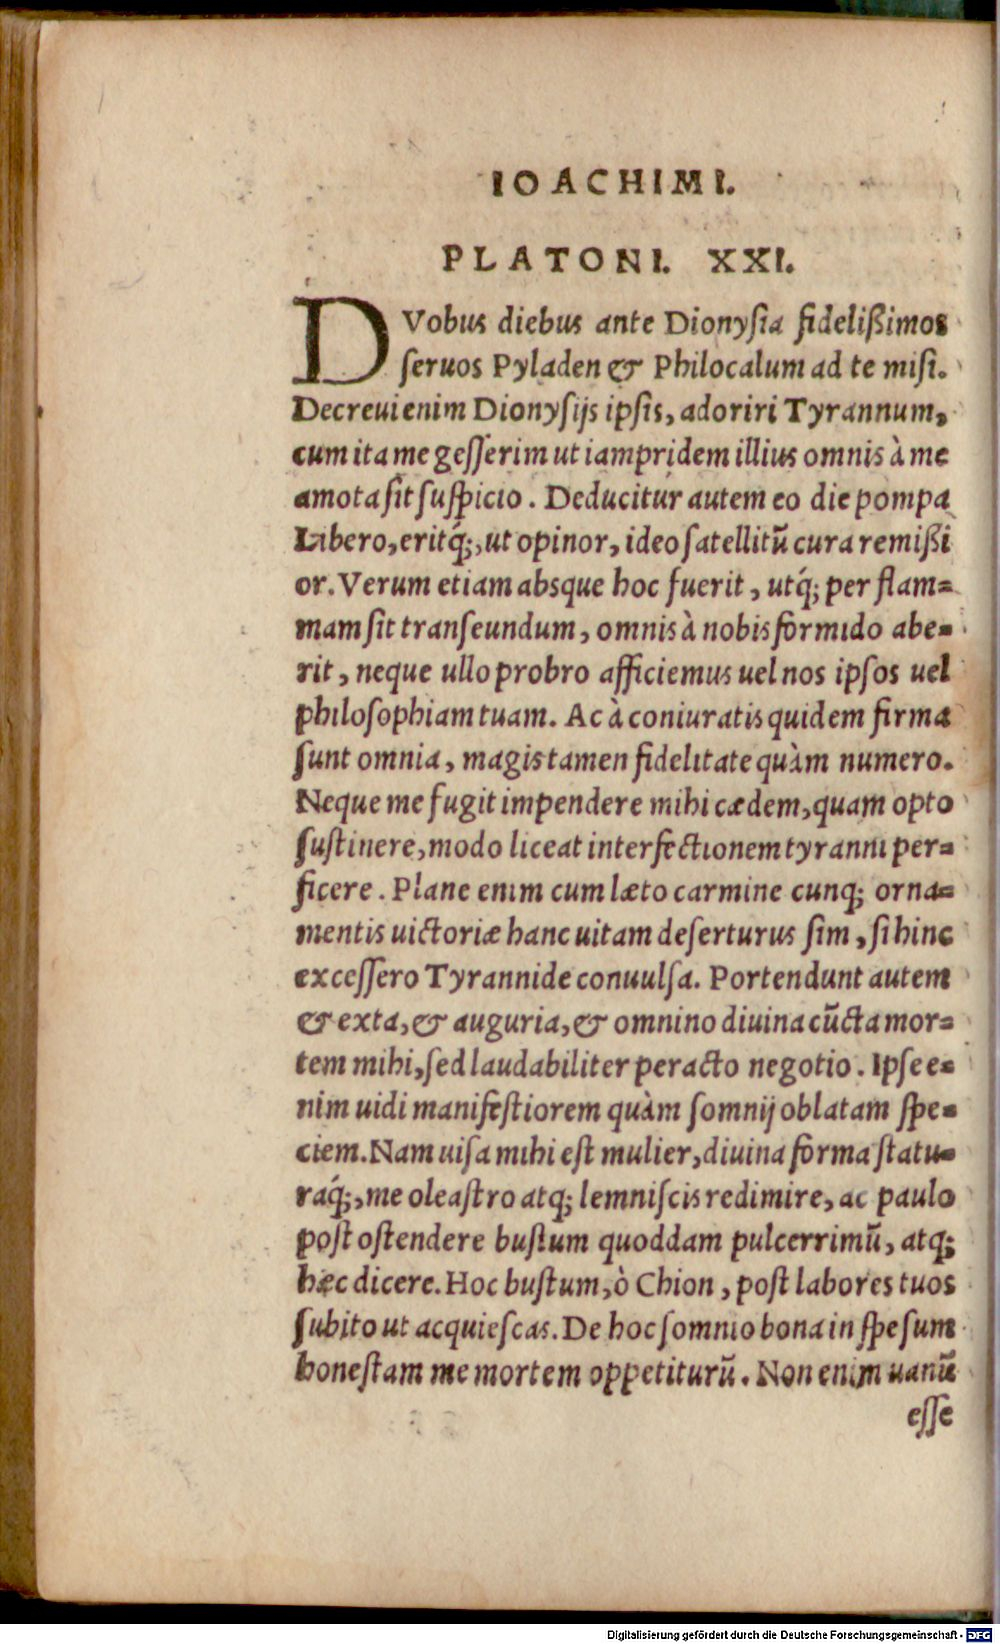 IOACHIMI.
PLATONI. XXI.
DVobus diebus ante Dionyſia fidelißimos
ſeruos Pyladen & Philocalum ad te miſi.
Decreui enim Dionyſijs ipſis, adoriri Tyrannum,
cum ita me geſſerim ut iampridem illius omnis à me
amota ſit ſuſpicio. Deducitur autem eo die pompa
Libero, eritq́;, ut opinor, ideo ſatellitũ cura remißi
or. Verum etiam absque hoc fuerit, utq́; per flam=
mam ſit tranſeundum, omnis à nobis formido abe=
rit, neque ullo probro afficiemus uel nos ipſos uel
philoſophiam tuam. Ac à coniuratis quidem firma
ſunt omnia, magis tamen fidelitate quàm numero.
Neque me fugit impendere mihi cædem, quam opto
ſuſtinere, modo liceat interfectionem tyranni per=
ficere. Plane enim cum læto carmine cunq; orna=
mentis uictoriæ hanc uitam deſerturus ſim, ſi hinc
exceſſero Tyrannide conuulſa. Portendunt autem
& exta, & auguria, & omnino diuina cũcta mor=
tem mihi, ſed laudabiliter peracto negotio. Ipſe e=
nim uidi manifeſtiorem quàm ſomnij oblatam ſpe=
ciem. Nam uiſa mihi eſt mulier, diuina forma ſtatu=
raq́;, me oleaſtro atq; lemniſcis redimire, ac paulo
poſt oſtendere buſtum quoddam pulcerrimũ, atq;
hæc dicere. Hoc buſtum, ò Chion, poſt labores tuos
ſubito ut acquieſcas. De hoc ſomnio bona in ſpe ſum
honeſtam me mortem oppetiturũ. Non enim uanũ
eſſe
Digitalisierung gefördert durch die Deutsche Forschungsgemeinschaft - DFG